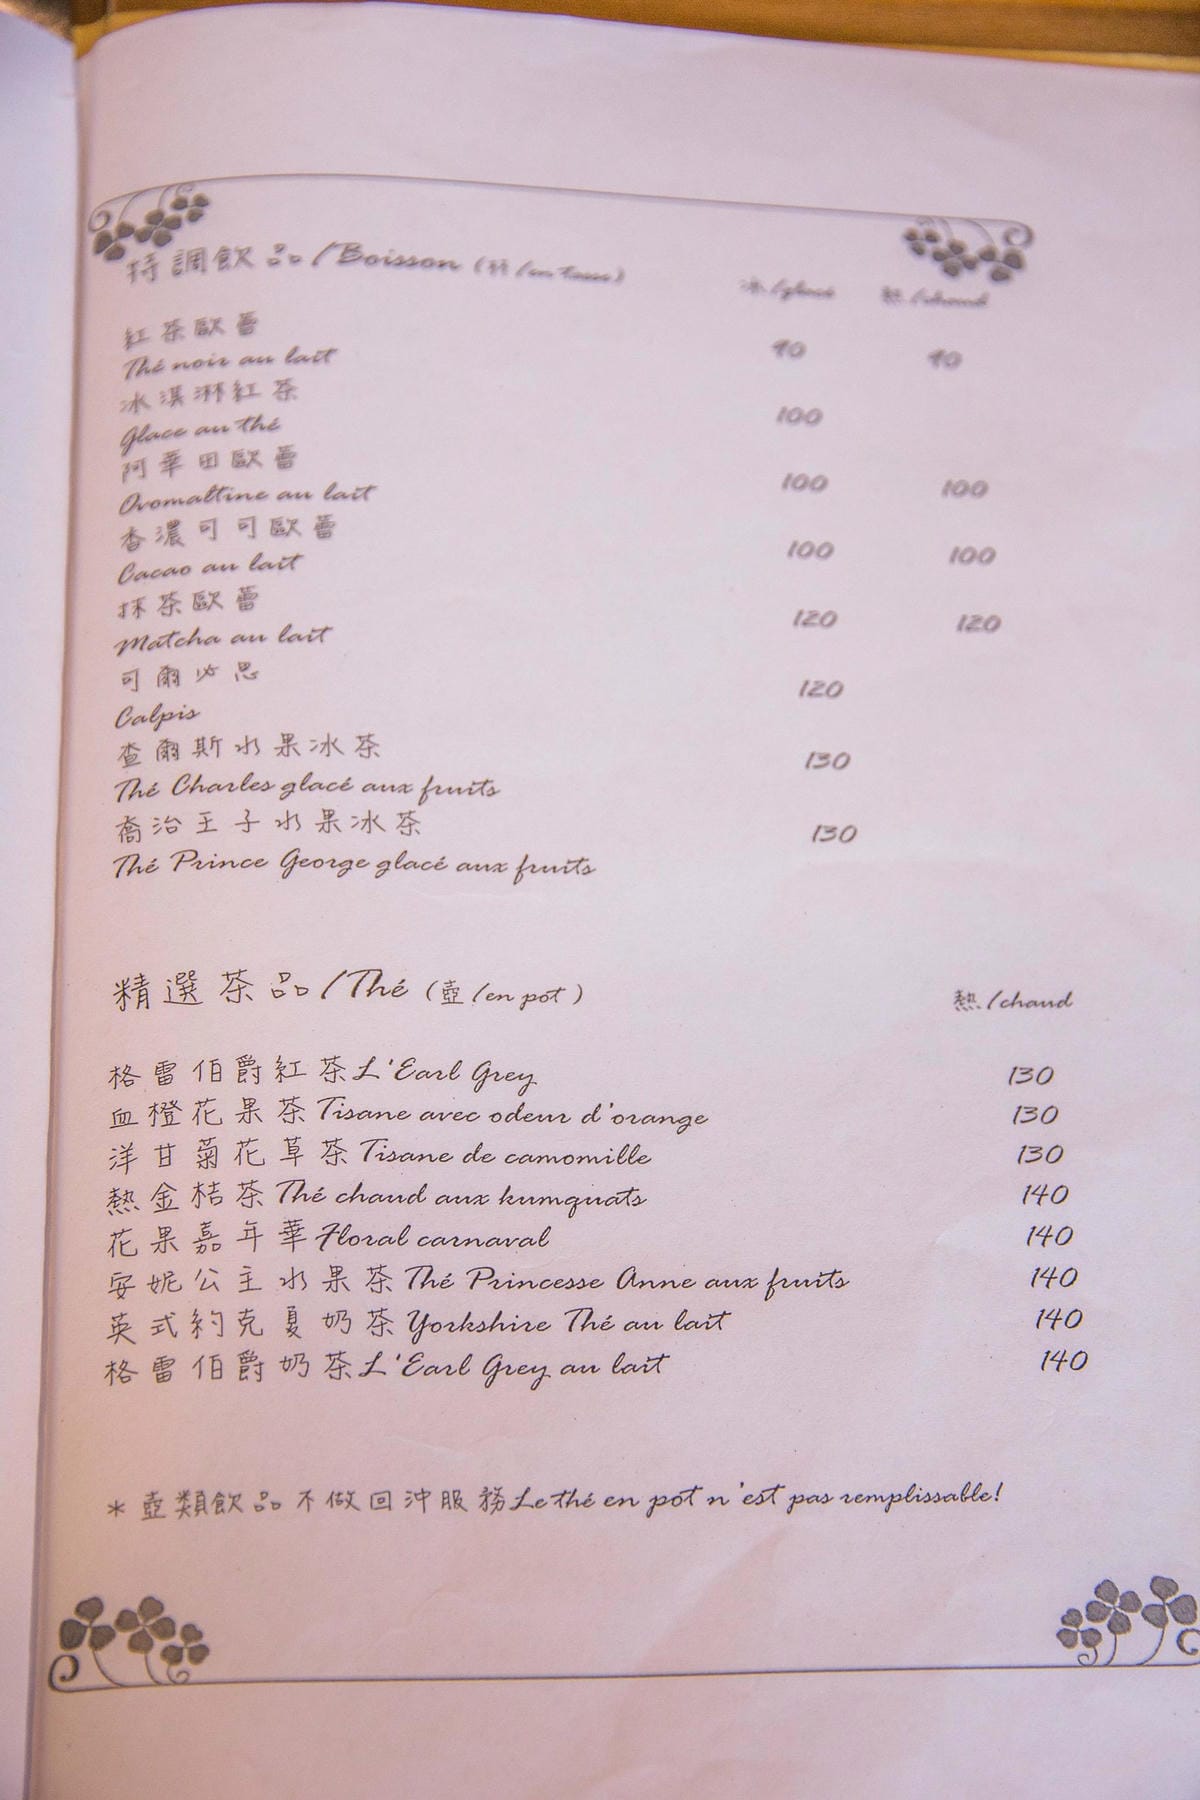 特調飲品/Boisson (杯/en tasse)
冰/glacé 熱/chaud
紅茶歐蕾
Thé noir au lait 90 90
冰淇淋紅茶
Glace au thé 100
阿華田歐蕾
Ovomaltine au lait 100 100
香濃可可歐蕾
Cacao au lait 100 100
抹茶歐蕾
Matcha au lait 120 120
可爾必思
Calpis 120
查爾斯水果冰茶
Thé Charles glacé aux fruits 130
喬治王子水果冰茶
Thé Prince George glacé aux fruits 130
精選茶品/Thé (壺/en pot)
熱/chaud
格雷伯爵紅茶L'Earl Grey 130
血橙花果茶Tisane avec odeur d'orange 130
洋甘菊花草茶Tisane de camomille 130
熱金桔茶Thé chaud aux kumquats 140
花果嘉年華Floral carnaval 140
安妮公主水果茶Thé Princesse Anne aux fruits 140
英式約克夏奶茶Yorkshire Thé au lait 140
格雷伯爵奶茶L'Earl Grey au lait 140
* 壺類飲品不做回沖服務Le thé en pot n'est pas remplissable!